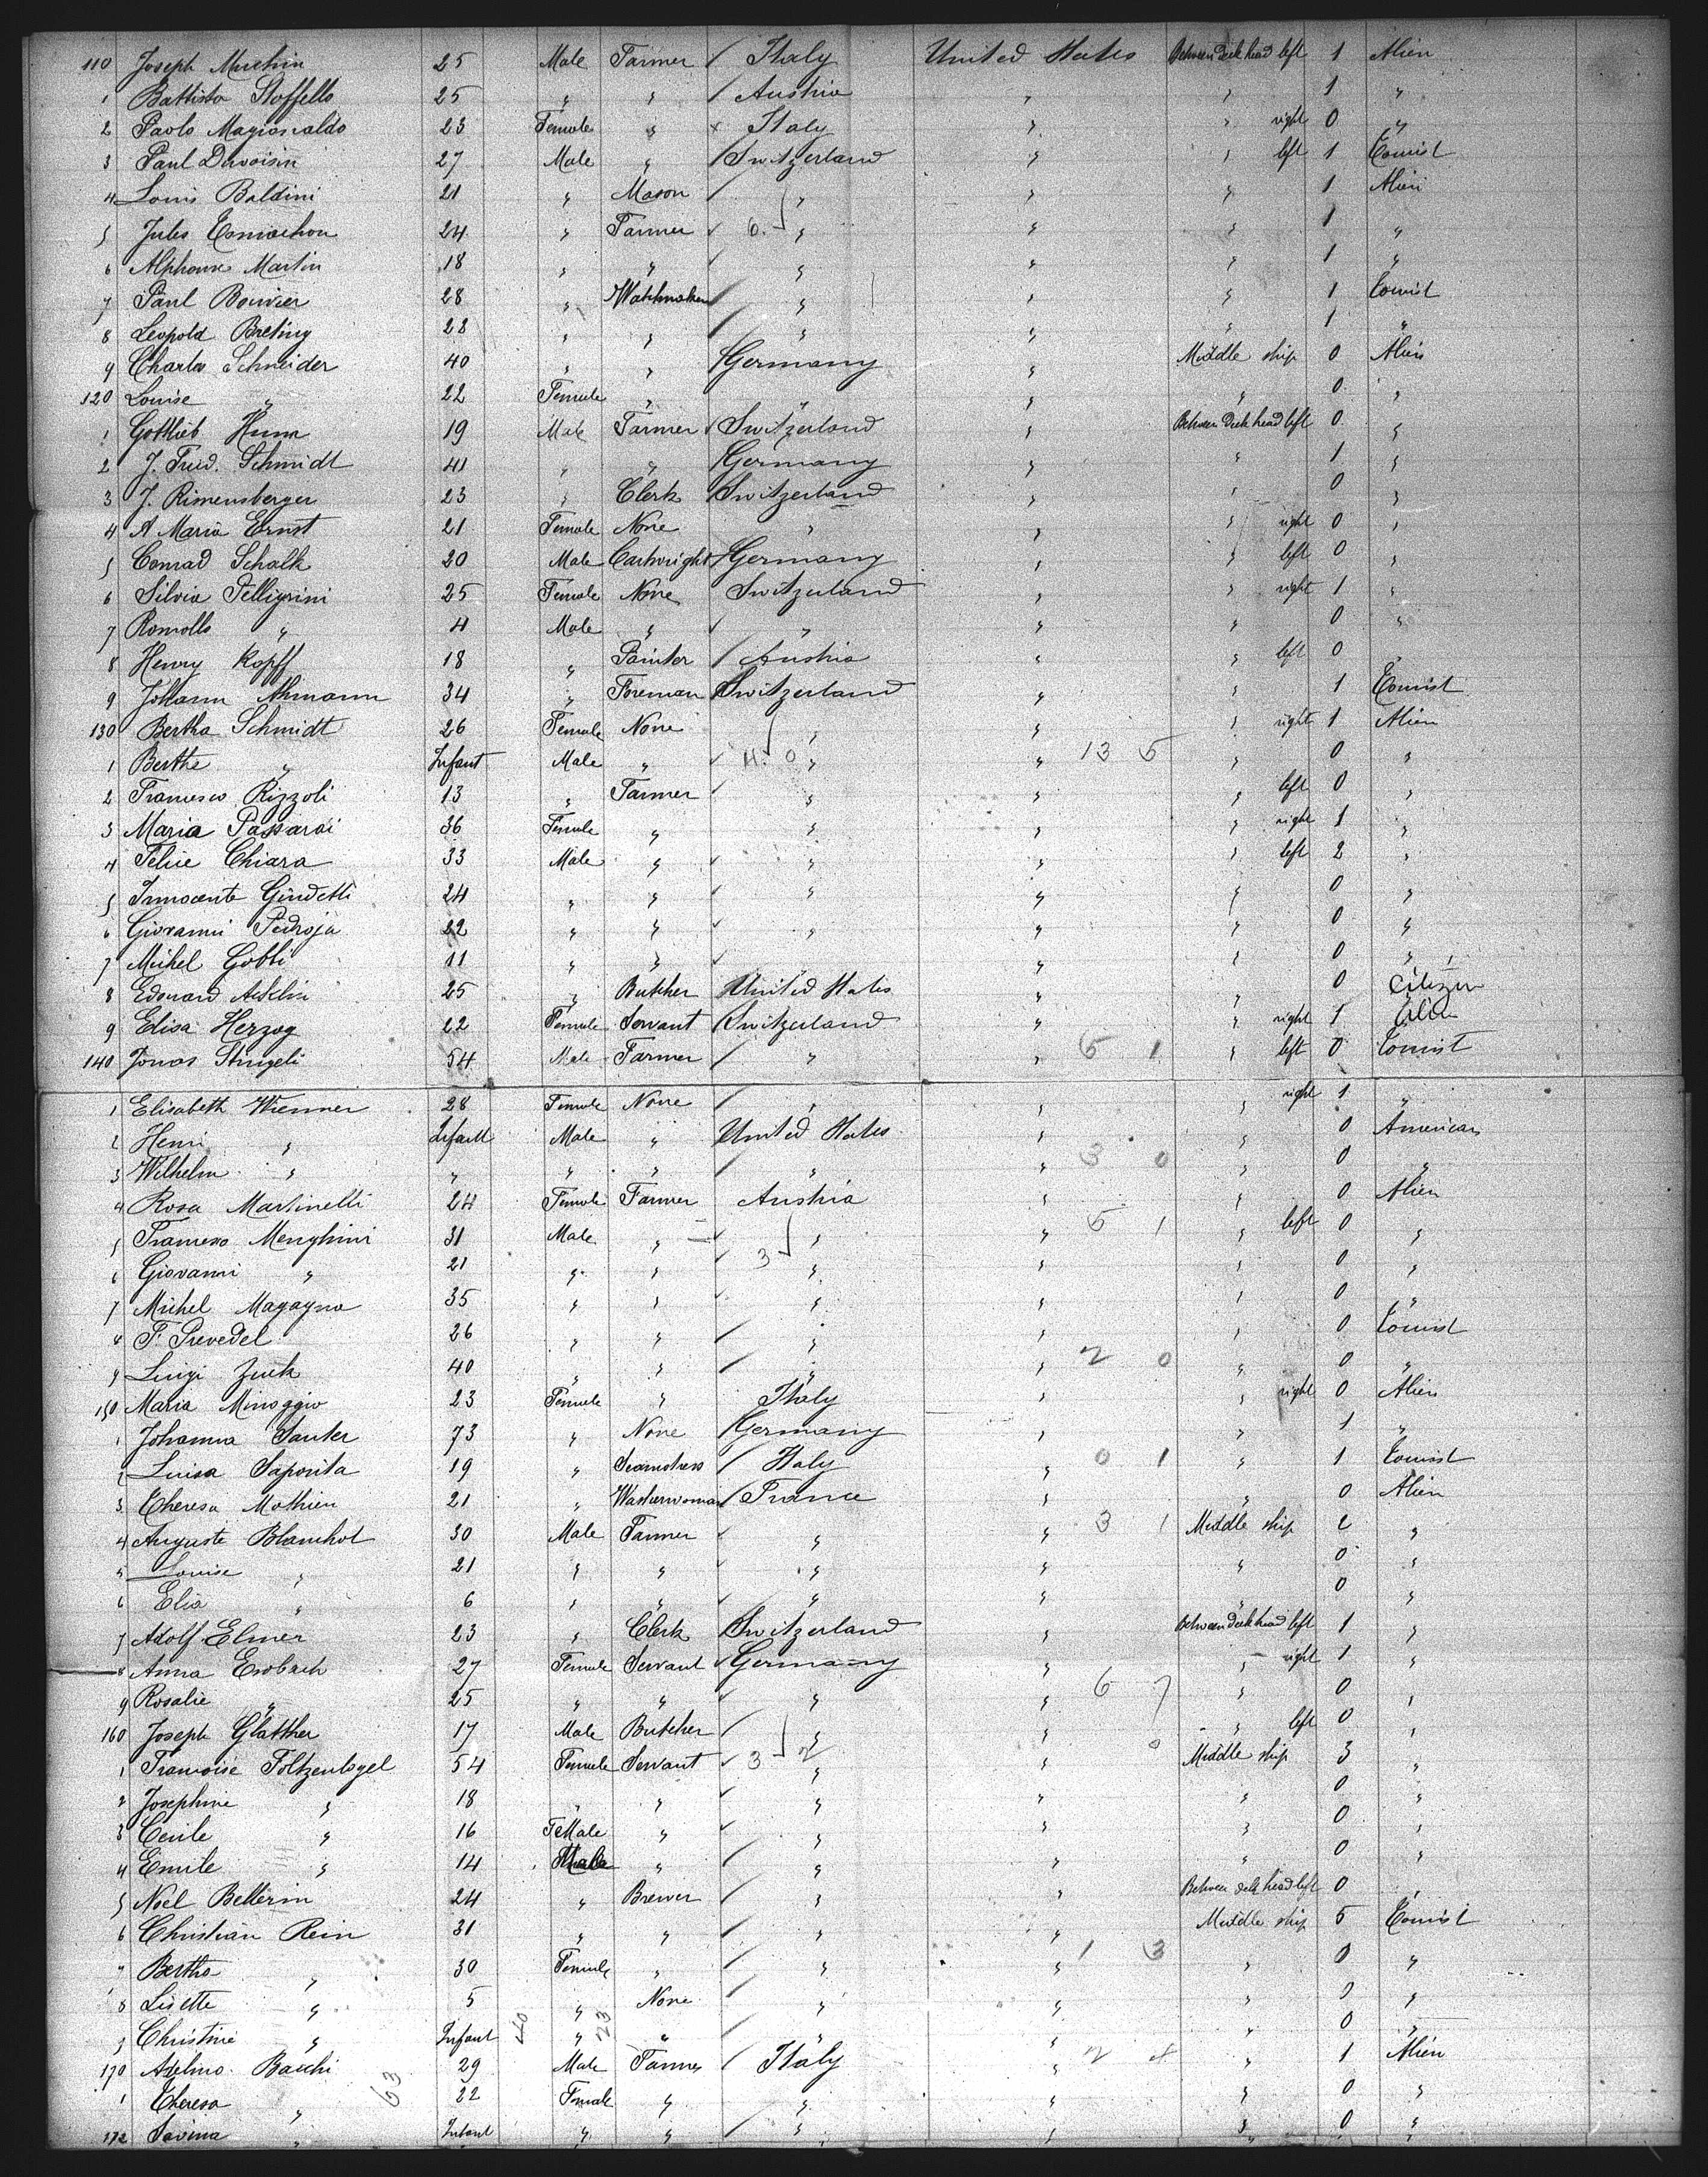 110 Joseph Muchin 25 Male Farmer / Italy United States Between deck head left 1 Alien
1 Battista Stoffello 25 " " / Austria " " 1 "
2 Paolo 23 Female " x Italy " " right 0 "
3 Paul Duvoisin 27 Male " / Switzerland " " left 1 Tourist
4 Louis Baldini 21 " Mason / " " " 1 Alien
5 Jules 24 " Farmer " " " 1 "
6 Alphonse Martin 18 " " " " " 1 "
7 Paul Bouvier 28 " Watchmaker / " " " 1 Tourist
8 Leopold Breting 28 " " / " " " 1 "
9 Charles Schneider 40 " " / Germany " Middle ship 0 Alien
120 Louise " 22 Female " " " " 0 "
1 Gottlieb Hunn 19 Male Farmer Switzerland " Between deck head left 0 "
2 J. Fred. Schmidt 41 " " / Germany " " 1 "
3 J. Rimensberger 23 " Clerk / Switzerland " " 0 "
4 A Maria Ernst 21 Female None " " " right 0 "
5 Conrad Schalk 20 Male Cartwright / Germany " " left 0 "
6 Silvia Pelligrini 25 Female None Switzerland " " right 1 "
7 Romollo " 4 Male " " " " 0 "
8 Henry Kopff 18 " Painter / Austria " " left 0 "
9 Johann Ahmann 34 " Foreman Switzerland " " 1 Tourist
130 Bertha Schmidt 26 Female None " " " right 1 Alien
1 Berthe " Infant Male " " " 13 5 " 0 "
2 Francesco Rizzoli 13 " Farmer " " " left 0 "
3 Maria Passarai 36 Female " " " " right 1 "
4 Felice Chiara 33 Male " " " " left 2 "
5 Innocente Gindetti 24 " " " " " 0 "
6 Giovanni Pedroja 22 " " " " " 0 "
7 Michel Gobbi 11 " " " " " 0 "
8 Edouard 25 " Butcher United States " " 0 Citizen
9 Elisa Herzog 22 Female Servant / Switzerland " " right 1 Alien
140 Jonas Stingeli 54 Male Farmer / " " 5 1 " left 0 Tourist
1 Elisabeth Wiemner 28 Female None / " " " right 1 "
2 Henri " Infant Male " United States " " 0 American
3 Wilhelm " " " " / " " 3 0 " 0 "
4 Rosa Martinelli 24 Female Farmer Austria " " 0 Alien
5 Francesco Menghini 31 Male " " " 5 1 " left 0 "
6 Giovanni " 21 " " 3 " " " 0 "
7 Michel Magagna 35 " " " " " 0 "
8 F. Prevedel 26 " " / " " " 0 Tourist
9 Luigi Zuek 40 " " / " " 2 0 " 0 "
150 Maria Minoggio 23 Female " Italy " " right 0 Alien
1 Johanna Sauter 73 " None / Germany " " 1 "
2 Luisa Saporita 19 " Seamstress / Italy " 0 1 " 1 Tourist
3 Theresa Mathieu 21 " Washerwoman / France " " 0 Alien
4 Auguste Blanchot 30 Male Farmer " " 3 1 Middle ship 2 "
5 Louise " 21 " " " " " 0 "
6 Elia " 6 " " " " " 0 "
7 Adolf Elmer 23 " Clerk Switzerland " Between deck head left 1 "
8 Anna 27 Female Servant Germany " " right 1 "
9 Rosalie " 25 " " " " 6 7 " 0 "
160 Joseph Glatther 17 Male Butcher / " " " left 0 "
1 Francoise Foltzenlogel 54 Female Servant 3 2 " " Middle ship 3 "
2 Josephine " 18 " " " " " 0 "
3 Cecile " 16 FeMale " " " " 0 "
4 Emile " 14 Male " / " " " 0 "
5 Noel Bellerin 24 " Brewer / " " Between deck head left 0 "
6 Christian Rein 31 " " / " " Middle ship 5 Tourist
7 Bertha " 30 Female " / " " 1 3 " 0 "
8 Lisette " 5 " None / " " " 0 "
9 Christine " Infant " " / " " " 0 "
170 Adelmo Bacchi 29 Male Farmer / Italy " " 1 Alien
1 Theresa " 22 Female " " " " 0 "
172 Savina " Infant " " / " " " 0 "
63 40 23